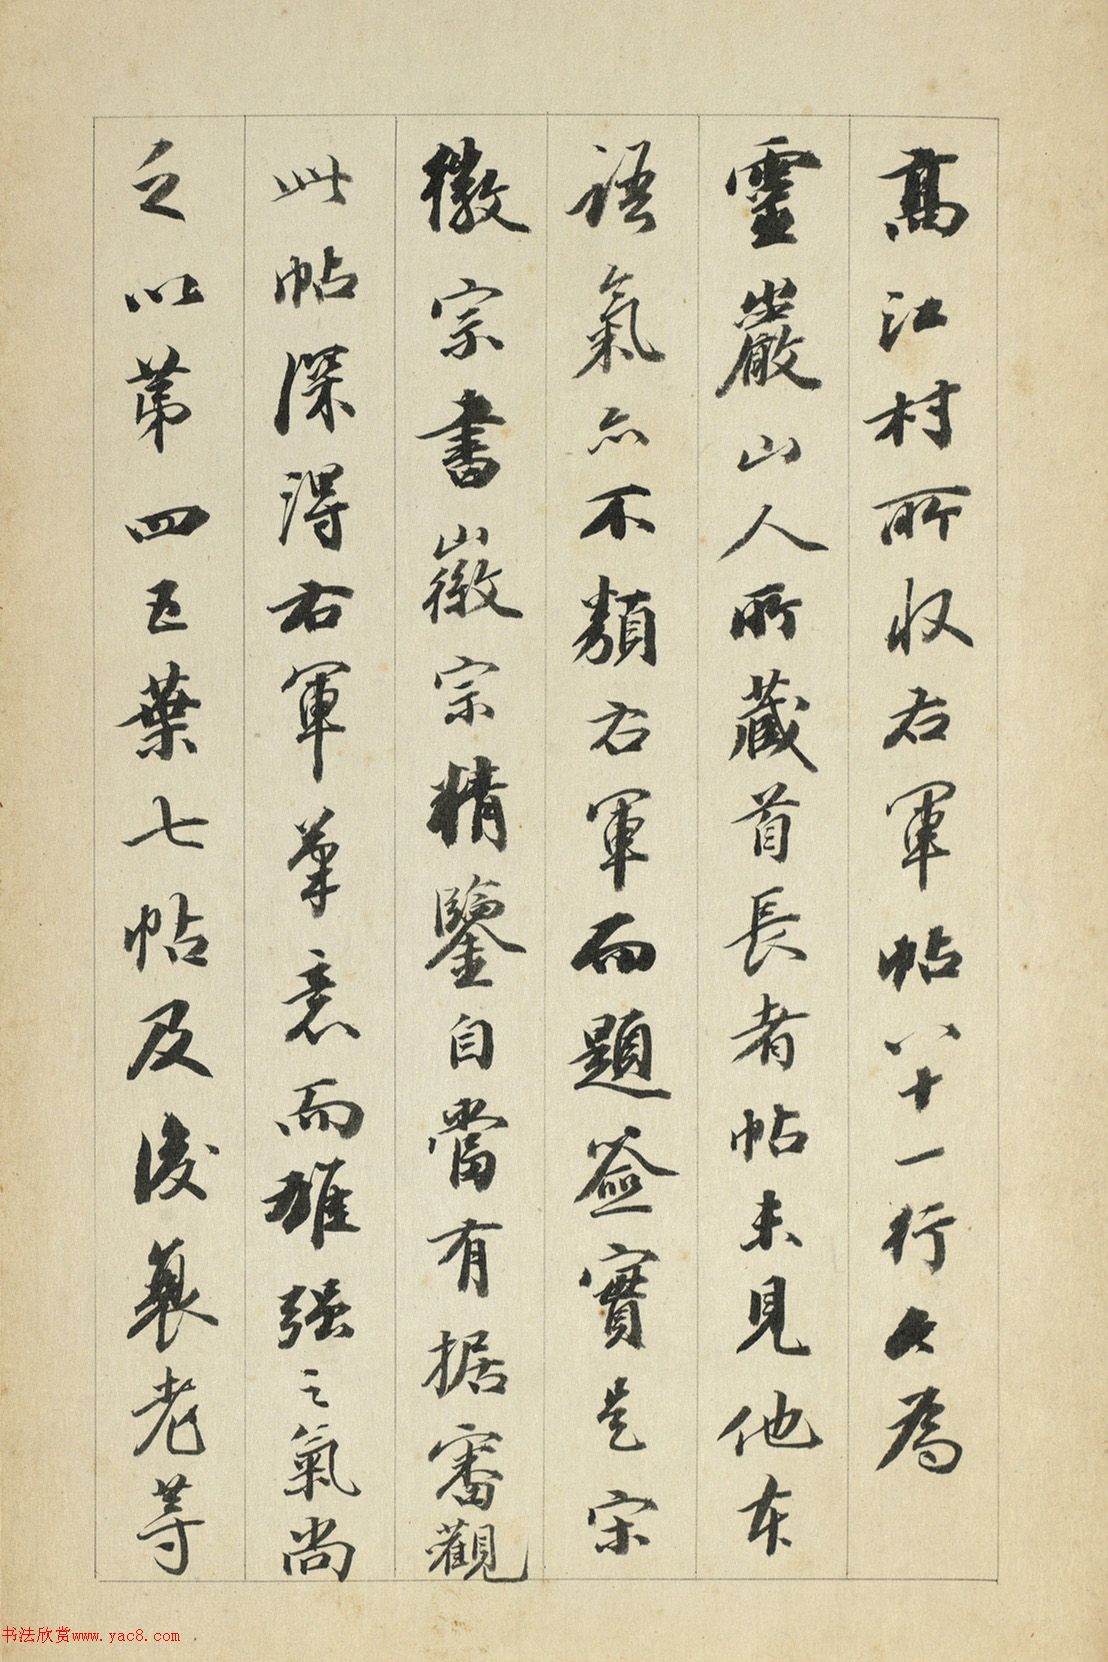 高江村所收右軍帖八十一行久爲
靈巖山人所藏首長者帖未見他本
語氣亦不類右軍而題簽實是宋
徽宗書徽宗精鑒自當有据審觀
此帖深得右軍筆意而雄强之氣尚
之以第四五葉七帖及後襄老等
书法欣赏www.yac8.com